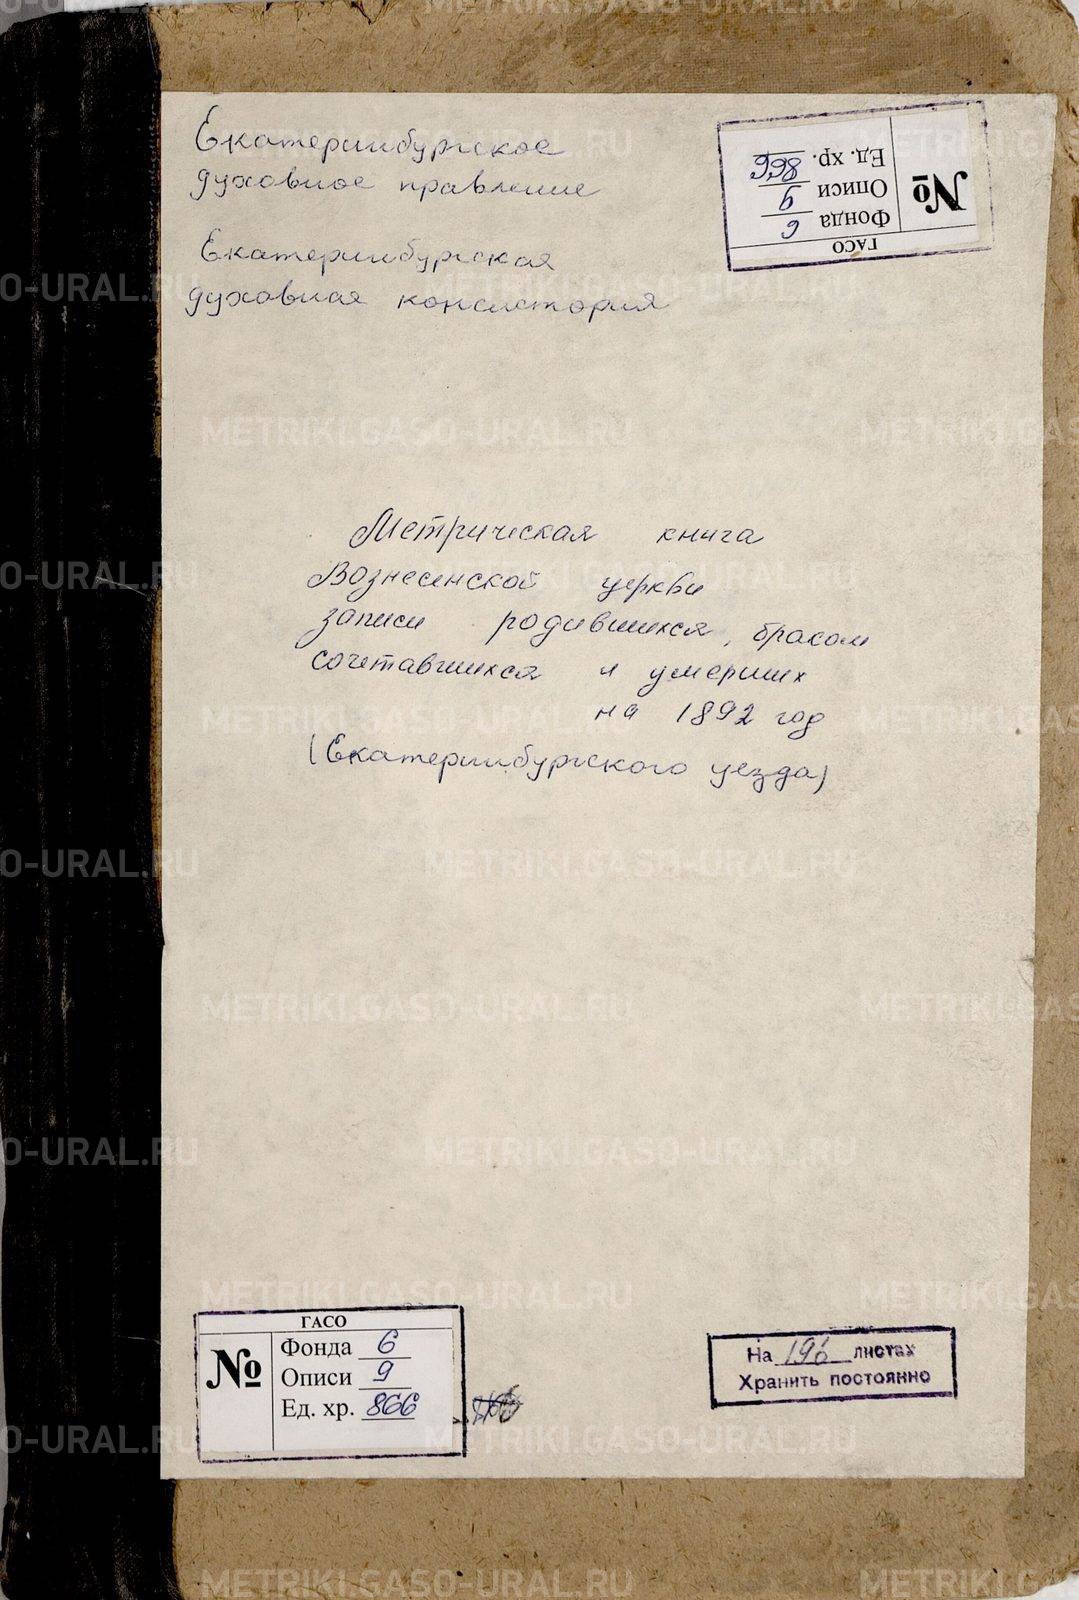 Екатеринбургское
духовное правление
Екатеринбургская
духовная консистория
ГАСО
№
Фонда 6
Описи 9
Ед. хр. 866
Метрическая книга
Вознесенской церкви
записи родившихся, браком
сочетавшихся и умерших
на 1892 год
(Екатеринбургского уезда)
ГАСО
№
Фонда 6
Описи 9
Ед. хр. 866
На 196 листах
Хранить постоянно
METRIKI.GASO-URAL.RU